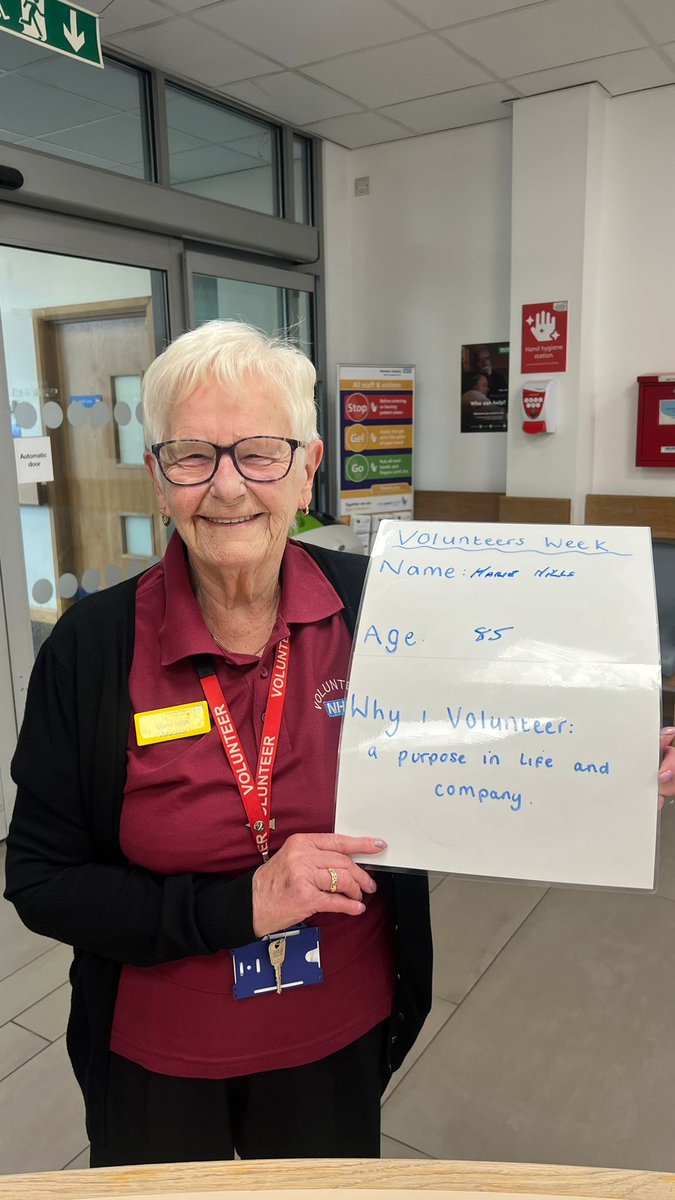 Automatic
door
All staff & visitors
Stop
Gel
Go
Who can help?
Hand hygiene
station
VOLUNTEER
VOLUNTEER
VOLUNTEER
VOLUNTEER
NHS
Volunteer
Volunteers Week
Name: MARIE
Age: 85
Why I Volunteer:
a purpose in Life and
company.